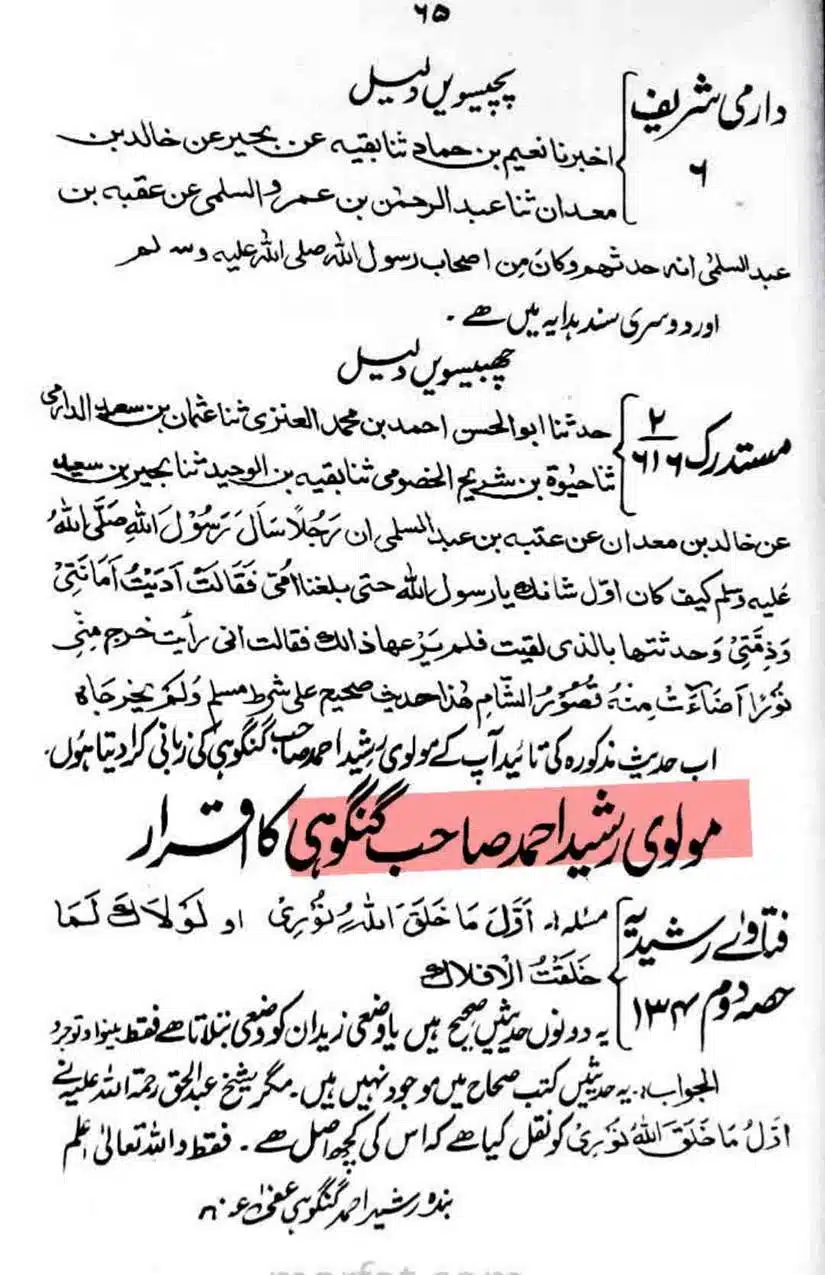 ۶۵
پچیسویں دلیل
دارمی شریف ۶
اخبرنا نعیم بن حماد ثنا بقیہ عن بحیر عن خالد بن
معدان ثنا عبد الرحمٰن بن عمرو السلمی عن عقبہ بن
عبد السلمی انہ حدثھم وکان من اصحاب رسول اللہ صلی اللہ علیہ وسلم
اور دوسری سند ہدایہ میں ھے ۔
چھبیسویں دلیل
مستدرک ۲/۶۱۶
حدثنا ابو الحسن احمد بن محمد العنزی ثنا عثمان بن سعید الدارمی
ثنا حیوۃ بن شریح الخضومی ثنا بقیہ بن الوحید ثنا بحیر بن سعید
عن خالد بن معدان عن عتبہ بن عبد السلمی ان رَجُلاً سَأَلَ رَسُوْلَ اللّٰہِ صَلَّی اللّٰہُ
عَلیہ وَسلم کیف کان اوّل شانک یا رسول اللہ حتی بلغنا امی فَقَالَتْ اَدَیْتُ اَمَانَتِیْ
وَذِمَّتِیْ وَحدثتھا بالذی لقیت فلم یَرْعھا ذالک فقالت انی رأیت خرج مِنِّی
نُوْرًا اَضَاءَتْ مِنْہُ قُصُوْرُ الشَّامِ ھٰذا حدیث صحیح علی شرط مسلم وَلَمْ یخرجاہ
اب حدیث مذکورہ کی تائید آپ کے مولوی رشید احمد صاحب گنگوہی کی زبانی کرا دیتا ہُوں۔
مولوی رشید احمد صاحب گنگوہی کا اقرار
فتاوٰے رشیدیہ حصہ دوم ۱۳۴
مسئلہ:۔ اَوَّلَ مَا خَلَقَ اللّٰہُ نُوْرِیْ او لَوْلَاکَ لَمَا
خَلَقْتُ الْاَفْلَاکَ
یہ دونوں حدیثیں صحیح ہیں یا وضعی زید ان کو وضعی بتلاتا ھے فقط بینوا و توجرو
الجواب:۔ یہ حدیثیں کتب صحاح میں موجود نہیں ہیں۔ مگر شیخ عبد الحق رحمۃ اللہ علیہ نے
اوّلُ مَا خَلَقَ اللّٰہُ نُوْرِیْ کو نقل کیا ھے کہ اس کی کچھ اصل ھے ۔ فقط واللہ تعالیٰ اعلم
بندہ رشید احمد گنگوہی عفی عنہ
marfat.com